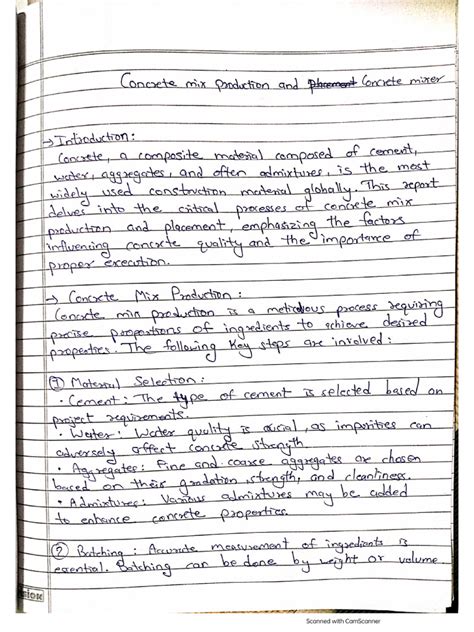 Concrete mix production and placement Concrete mixer
→ Introduction:
Concrete, a composite material composed of cement,
water, aggregates, and often admixtures, is the most
widely used construction material globally. This report
delves into the critical processes of concrete mix
production and placement, emphasizing the factors
influencing concrete quality and the importance of
proper execution.
→ Concrete Mix Production:
Concrete min production is a meticulous process requiring
precise proportions of ingredients to achieve desired
properties. The following key steps are involved:
① Material Selection:
• Cement: The type of cement is selected based on
project requirements.
• Water: Water quality is crucial, as impurities can
adversely affect concrete strength
• Aggregates: Fine and coarse aggregates are chosen
based on their gradation, strength, and cleanliness.
• Admixtures: Various admixtures may be added
to enhance concrete properties.
② Batching: Accurate measurement of ingredients is
essential. Batching can be done by weight or volume.
Scanned with CamScanner